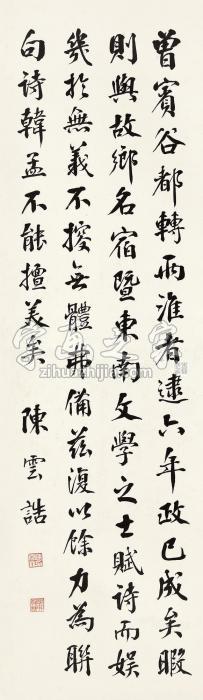 曾賓谷都轉兩淮者逮六年政已成矣暇
則與故鄉名宿暨東南文學之士賦詩而娛
幾於無義不搜無體弗備茲復以餘力為聯
句詩韓孟不能擅美矣
陳雲誥
字畫之家
zihuazhijia.com